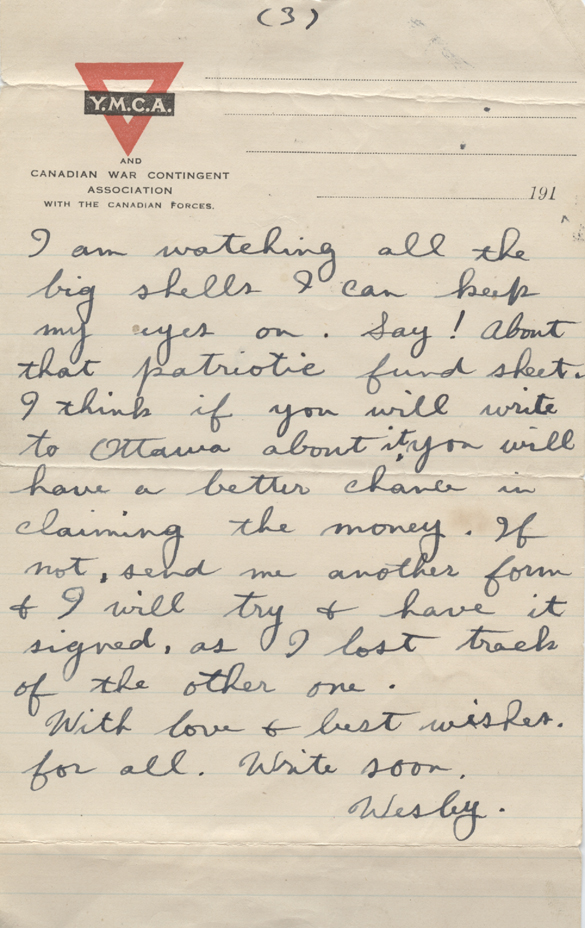 (3)
Y.M.C.A.
AND
CANADIAN WAR CONTINGENT
ASSOCIATION
WITH THE CANADIAN FORCES.
191
I am watching all the
big shells I can keep
my eyes on. Say! About
that patriotic fund sheet.
I think if you will write
to Ottawa about it, you will
have a better chance in
claiming the money. If
not, send me another form
& I will try & have it
signed, as I lost track
of the other one.
With love & best wishes.
for all. Write soon.
Wesby.